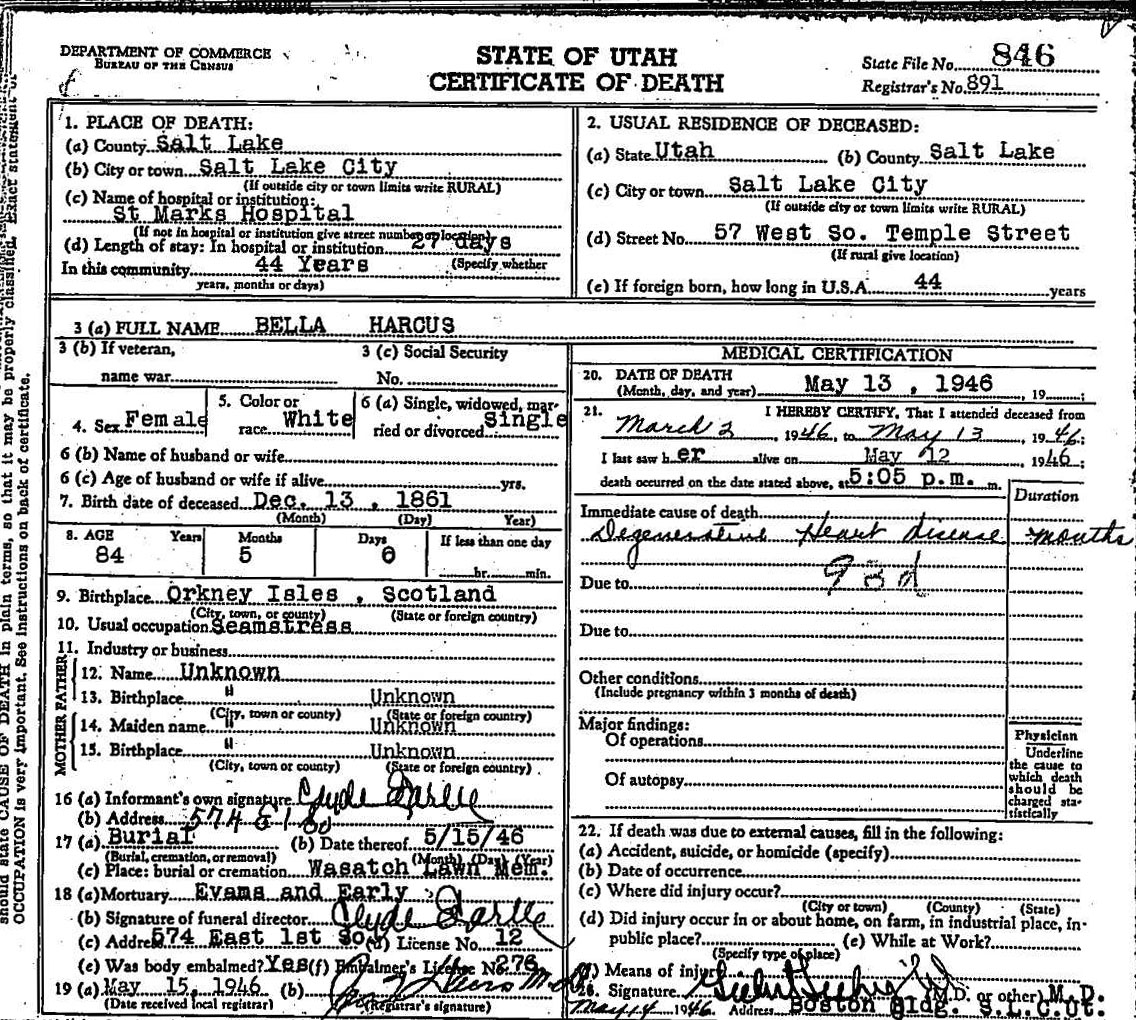 DEPARTMENT OF COMMERCE
BUREAU OF THE CENSUS
STATE OF UTAH
CERTIFICATE OF DEATH
State File No. 846
Registrar's No. 891
1. PLACE OF DEATH:
(a) County Salt Lake
(b) City or town Salt Lake City
(If outside city or town limits write RURAL)
(c) Name of hospital or institution:
St Marks Hospital
(If not in hospital or institution give street number or location)
(d) Length of stay: In hospital or institution 27 days
In this community 44 Years (Specify whether
years, months or days)
2. USUAL RESIDENCE OF DECEASED:
(a) State Utah (b) County Salt Lake
(c) City or town Salt Lake City
(If outside city or town limits write RURAL)
(d) Street No. 57 West So. Temple Street
(If rural give location)
(e) If foreign born, how long in U.S.A. 44 years
3 (a) FULL NAME BELLA HARCUS
3 (b) If veteran,
name war
3 (c) Social Security
No.
4. Sex Female
5. Color or
race White
6 (a) Single, widowed, mar-
ried or divorced Single
6 (b) Name of husband or wife
6 (c) Age of husband or wife if alive yrs.
7. Birth date of deceased Dec. 13 , 1861
(Month) (Day) Year)
8. AGE Years Months Days If less than one day
84 5 0
hr. min.
9. Birthplace Orkney Isles , Scotland
(City, town, or county) (State or foreign country)
10. Usual occupation Seamstress
11. Industry or business
FATHER
12. Name Unknown
13. Birthplace " Unknown
(City, town or county) (State or foreign country)
MOTHER
14. Maiden name " Unknown
15. Birthplace " Unknown
(City, town or county) (State or foreign country)
16 (a) Informant's own signature Clyde Earlle
(b) Address 574 E 1 So
17 (a) Burial (b) Date thereof 5/15/46
(Burial, cremation, or removal) (Month) (Day) (Year)
(c) Place: burial or cremation Wasatch Lawn Mem.
18 (a) Mortuary Evans and Early
(b) Signature of funeral director Clyde Earlle
(c) Address 574 East 1st So (d) License No. 12
(e) Was body embalmed? Yes (f) Embalmer's License No. 276
19 (a) May 15, 1946 (b)
(Date received local registrar) (Registrar's signature)
MEDICAL CERTIFICATION
20. DATE OF DEATH
(Month, day, and year) May 13 , 1946 , 19 ;
21. I HEREBY CERTIFY, That I attended deceased from
March 2 , 1946, to May 13 , 1946;
I last saw her alive on May 12 , 1946;
death occurred on the date stated above, at 5:05 p.m. m.
Duration
Immediate cause of death
Degenerative Heart disease months
Due to 93d
Due to
Other conditions
(Include pregnancy within 3 months of death)
Major findings:
Of operations
Of autopsy
Physician
Underline
the cause to
which death
should be
charged sta-
tistically
22. If death was due to external causes, fill in the following:
(a) Accident, suicide, or homicide (specify)
(b) Date of occurrence
(c) Where did injury occur?
(City or town) (County) (State)
(d) Did injury occur in or about home, on farm, in industrial place, in-
public place? (e) While at Work?
(Specify type of place)
(f) Means of injury
Signature (M.D. or other) M.D.
May 14 1946 Address Boston Bldg. S.L.C.Ut.
should state CAUSE OF DEATH in plain terms, so that it may be properly classified. Exact statement of
OCCUPATION is very important. See instructions on back of certificate.